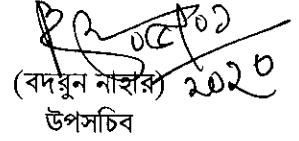 ০৫/০১
২০২০
(বদরুন নাহার)
উপসচিব